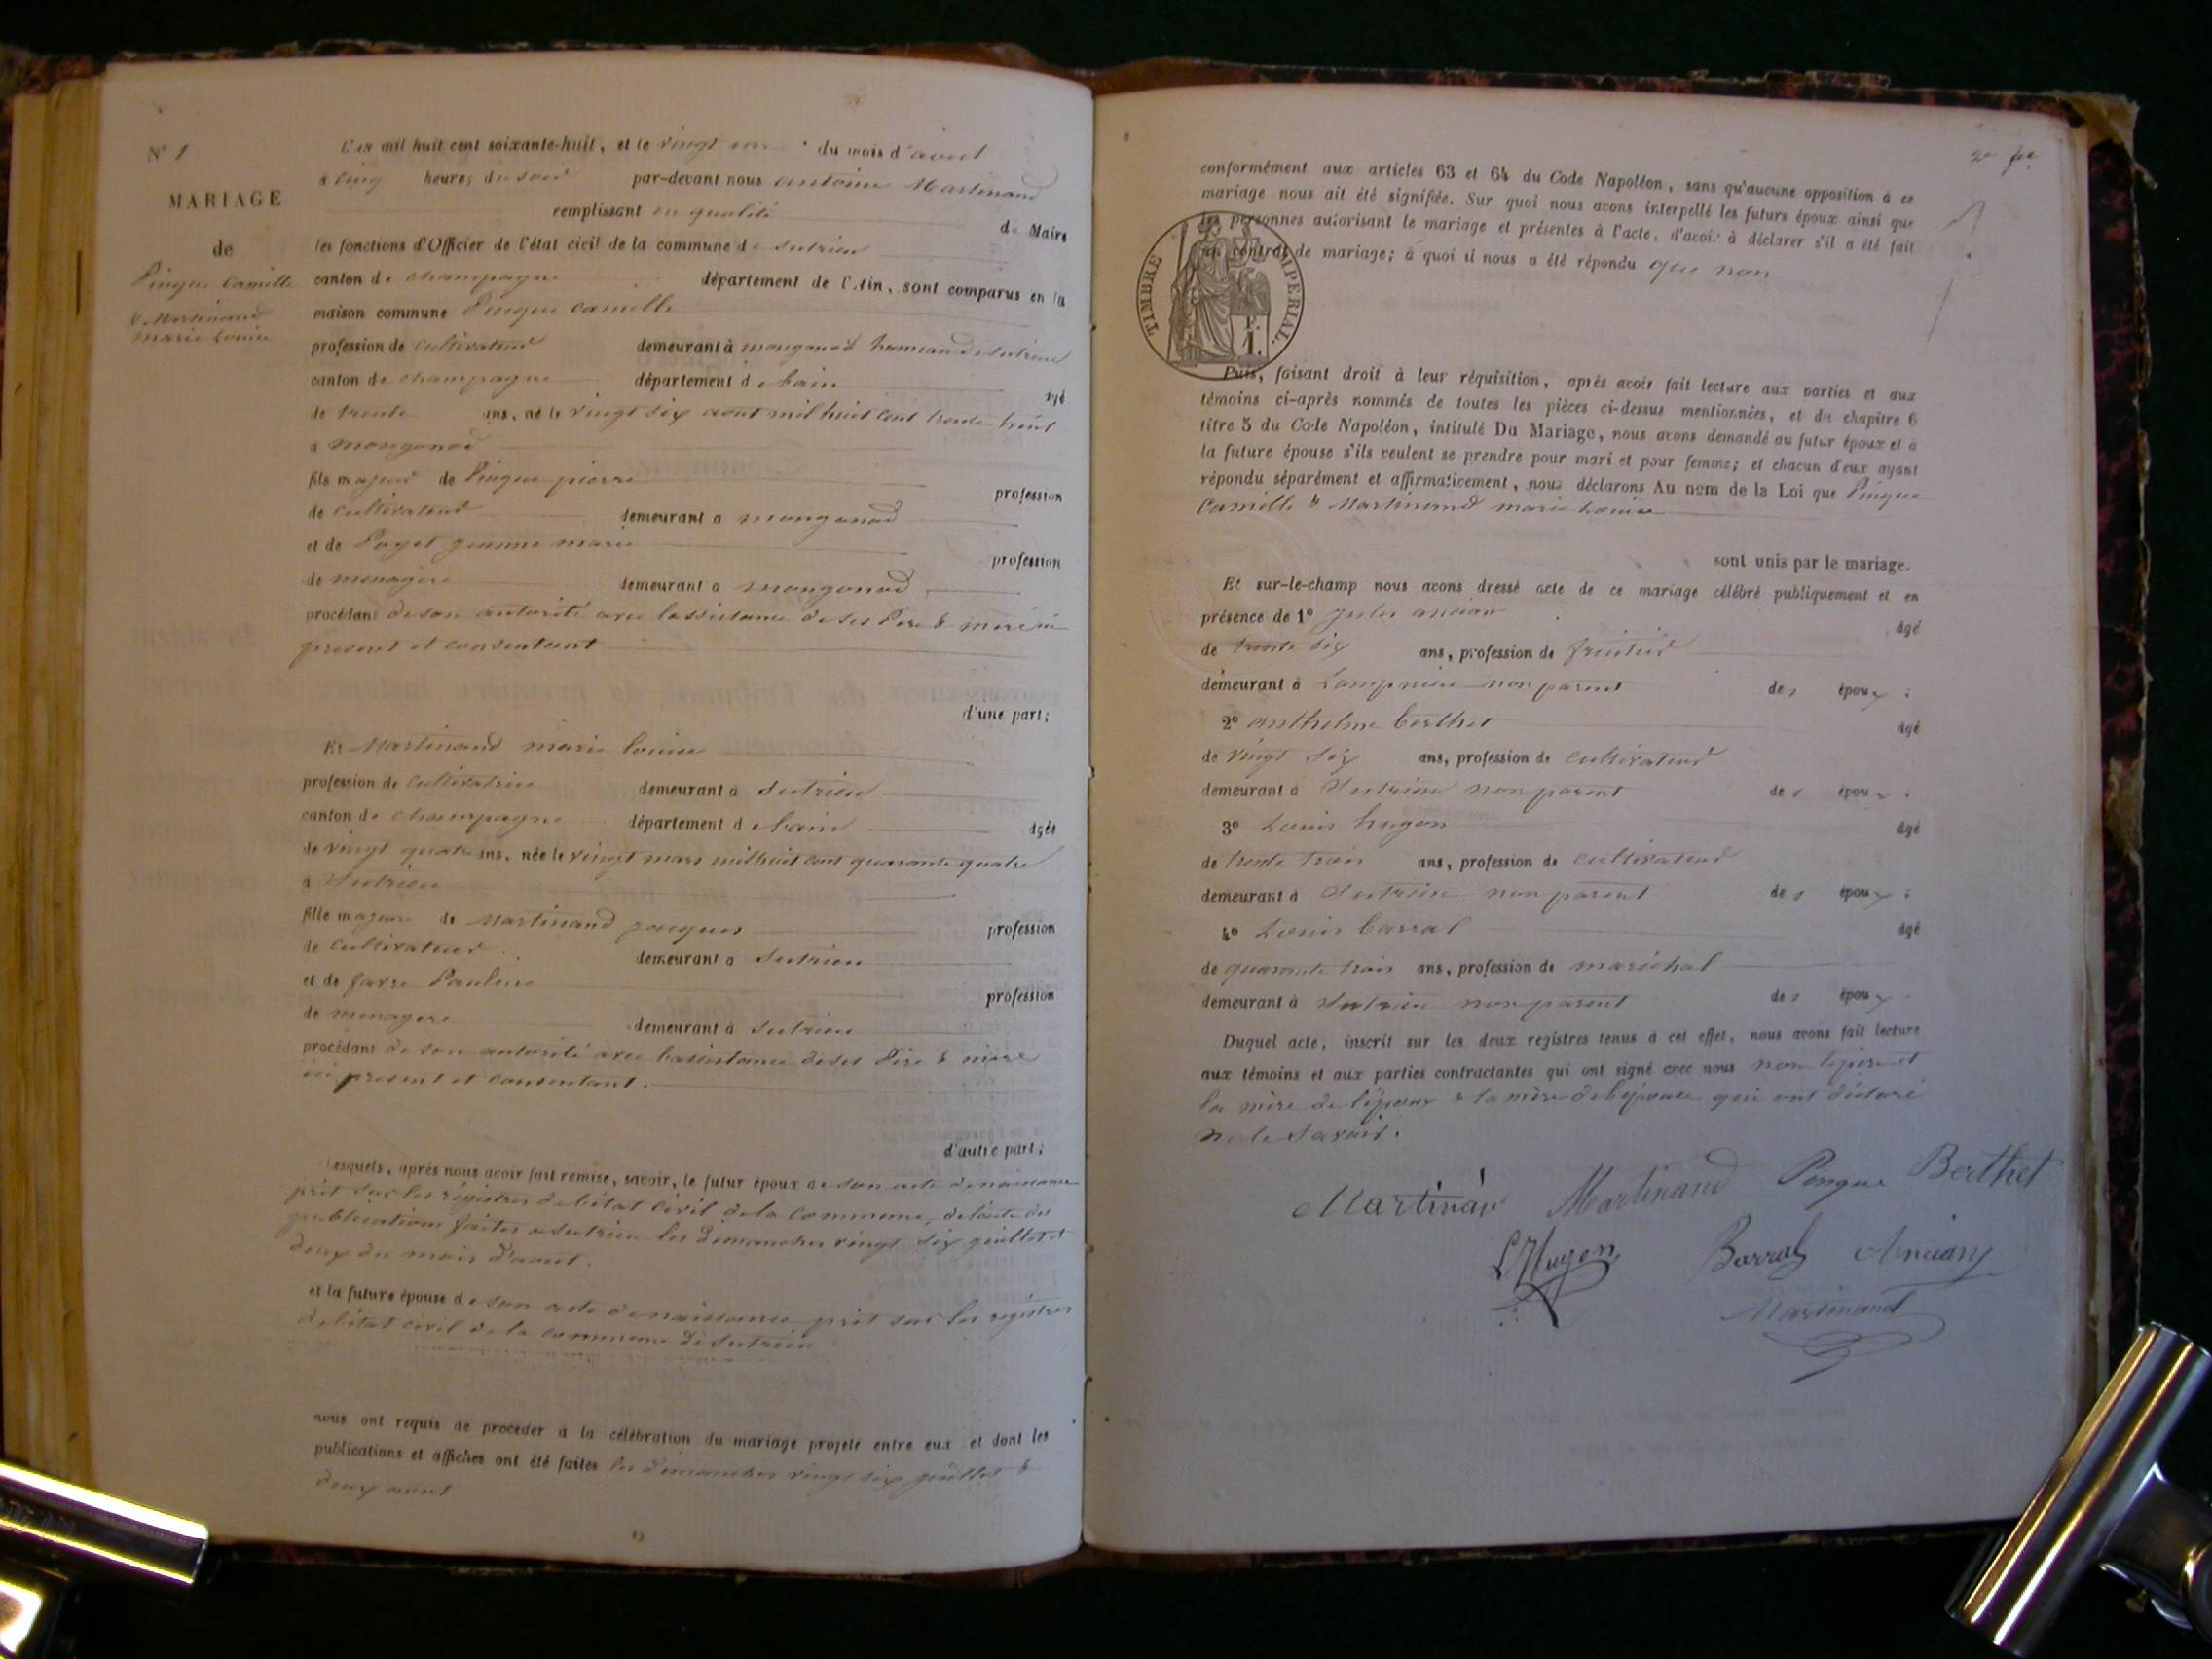 N° 1
MARIAGE
de
Pingue Camille
& Martinand
marie Louise
L'an mil huit cent soixante-huit, et le vingt du mois d'aout
à cinq heures du soir par-devant nous antoine Martinand
remplissant en qualité de Maire
les fonctions d'Officier de l'état civil de la commune de Sutrieu
canton de Champagne département de l'Ain, sont comparus en la
maison commune Pingue camille
profession de cultivateur demeurant à mongonod hameau de Sutrieu
canton de champagne département de lain âgé
de trente ans, né le vingt six aout mil huit cent trente huit
à mongonod
fils majeur de Pingue pierre profession
de cultivateur demeurant à mongonod
et de Poyet jeanne marie profession
de menagere demeurant à mongonod
procédant de son autorité avec lassistance de ses Pere & mere ici
present et consentent
d'une part;
Et Martinand marie louise
profession de cultivatrice demeurant à Sutrieu
canton de champagne département de lain âgée
de vingt quatre ans, née le vingt mars mil huit cent quarante quatre
à Sutrieu
fille majeure de Martinand jacques profession
de cultivateur demeurant à Sutrieu
et de favre Pauline profession
de menagere demeurant à Sutrieu
procédant de son autorité avec lassistance de ses Père & mère
ici présent et consentant.
d'autre part;
Lesquels, après nous avoir fait remise, savoir, le futur époux de son acte de naissance
prit sur les régistres de létat civil de la commune, de lacte des
publications faites a sutrieu les dimanches vingt six juillet et
deux du mois d'aout.
et la future épouse de son acte de naissance prit sur les registres
de létat civil de la commune de Sutrieu
nous ont requis de procéder à la célébration du mariage projeté entre eux et dont les
publications et affiches ont été faites les dimanches vingt six juillet &
deux aout
conformément aux articles 63 et 64 du Code Napoléon, sans qu'aucune opposition à ce
mariage nous ait été signifiée. Sur quoi nous avons interpellé les futurs époux ainsi que
les personnes autorisant le mariage et présentes à l'acte, d'avoir à déclarer s'il a été fait
un contrat de mariage; à quoi il nous a été répondu que non
TIMBRE IMPERIAL.
F.
1.
Puis, faisant droit à leur réquisition, après avoir fait lecture aux parties et aux
témoins ci-après nommés de toutes les pièces ci-dessus mentionnées, et du chapitre 6
titre 5 du Code Napoléon, intitulé Du Mariage, nous avons demandé au futur époux et à
la future épouse s'ils veulent se prendre pour mari et pour femme; et chacun d'eux ayant
répondu séparément et affirmativement, nous déclarons Au nom de la Loi que Pingue
Camille & Martinand marie Louise
sont unis par le mariage.
Et sur-le-champ nous avons dressé acte de ce mariage célébré publiquement et en
présence de 1° jules ancian âgé
de trente six ans, profession de fruitier
demeurant à Lompnieu non parent des époux;
2° anthelme berthet âgé
de vingt six ans, profession de cultivateur
demeurant à Sutrieu non parent des époux;
3° Louis hugon âgé
de trente trois ans, profession de cultivateur
demeurant à Sutrieu non parent des époux;
4° Louis barral âgé
de quarante trois ans, profession de maréchal
demeurant à Sutrieu non parent des époux.
Duquel acte, inscrit sur les deux registres tenus à cet effet, nous avons fait lecture
aux témoins et aux parties contractantes qui ont signé avec nous non le père et
la mère de lépoux & la mère de lépouse qui ont déclaré
ne le Savoir.
Martinand Martinand Pingue Berthet
L Hugon Barral Ancian
Martinand